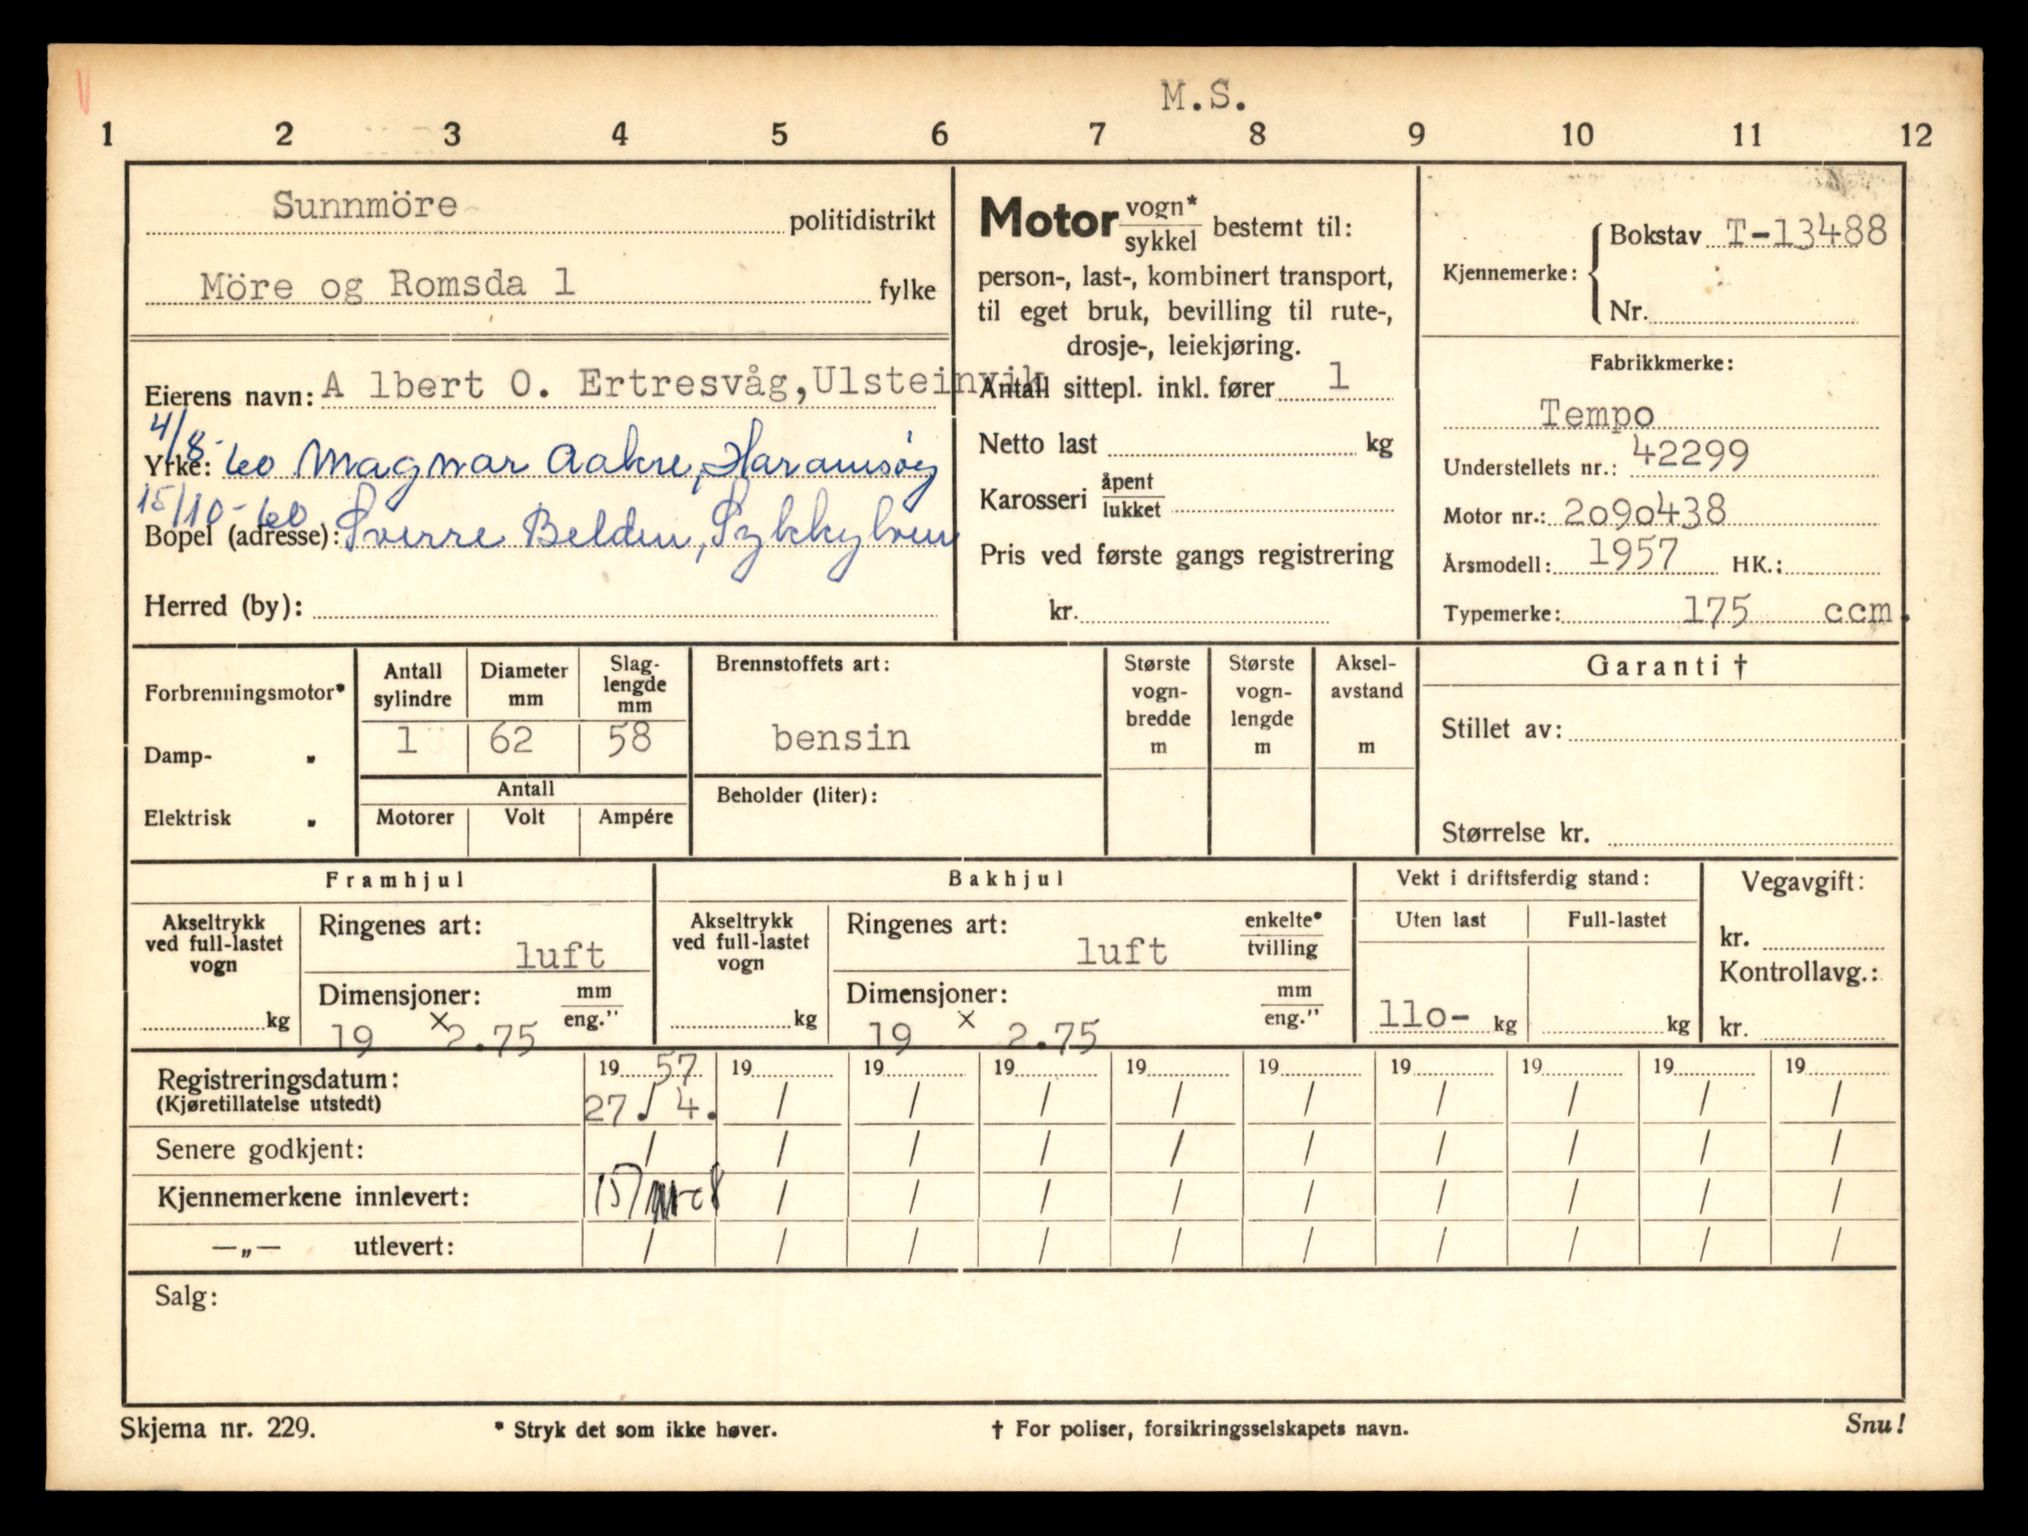 M.S.
1 2 3 4 5 6 7 8 9 10 11 12
Sunnmöre politidistrikt
Möre og Romsda l fylke
Eierens navn: A lbert O. Ertresvåg, Ulsteinvik
4/8-60 Magnar Aakre, Haramsøy
Yrke:
15/10-60 Sverre Beldun, Sykkylven
Bopel (adresse):
Herred (by):
Motor vogn* sykkel bestemt til:
person-, last-, kombinert transport,
til eget bruk, bevilling til rute-,
drosje-, leiekjøring.
Antall sittepl. inkl. fører 1
Netto last kg
Karosseri åpent lukket
Pris ved første gangs registrering
kr.
Kjennemerke: Bokstav T-13488
Nr.
Fabrikkmerke:
Tempo
Understellets nr.: 42299
Motor nr.: 2090438
Årsmodell: 1957 HK.:
Typemerke: 175 ccm.
Forbrenningsmotor*
Damp- "
Elektrisk "
Antall sylindre
Diameter mm
Slag-lengde mm
1 62 58
Antall
Motorer Volt Ampére
Brennstoffets art:
bensin
Beholder (liter):
Største vogn-bredde m
Største vogn-lengde m
Aksel-avstand m
Garanti †
Stillet av:
Størrelse kr.
Framhjul
Akseltrykk ved full-lastet vogn
kg
Ringenes art:
luft
Dimensjoner: mm eng."
19 x 2.75
Bakhjul
Akseltrykk ved full-lastet vogn
kg
Ringenes art: enkelte* tvilling
luft
Dimensjoner: mm eng."
19 x 2.75
Vekt i driftsferdig stand:
Uten last Full-lastet
110- kg kg
Vegavgift:
kr.
Kontrollavg.:
kr.
Registreringsdatum: 19 57 19 19 19 19 19 19 19 19 19
(Kjøretillatelse utstedt) 27. / 4. / / / / / / / / /
Senere godkjent: / / / / / / / / / /
Kjennemerkene innlevert: 15/ / / / / / / / / /
—„— utlevert: / / / / / / / / / /
Salg:
Skjema nr. 229. * Stryk det som ikke høver. † For poliser, forsikringsselskapets navn. Snu!